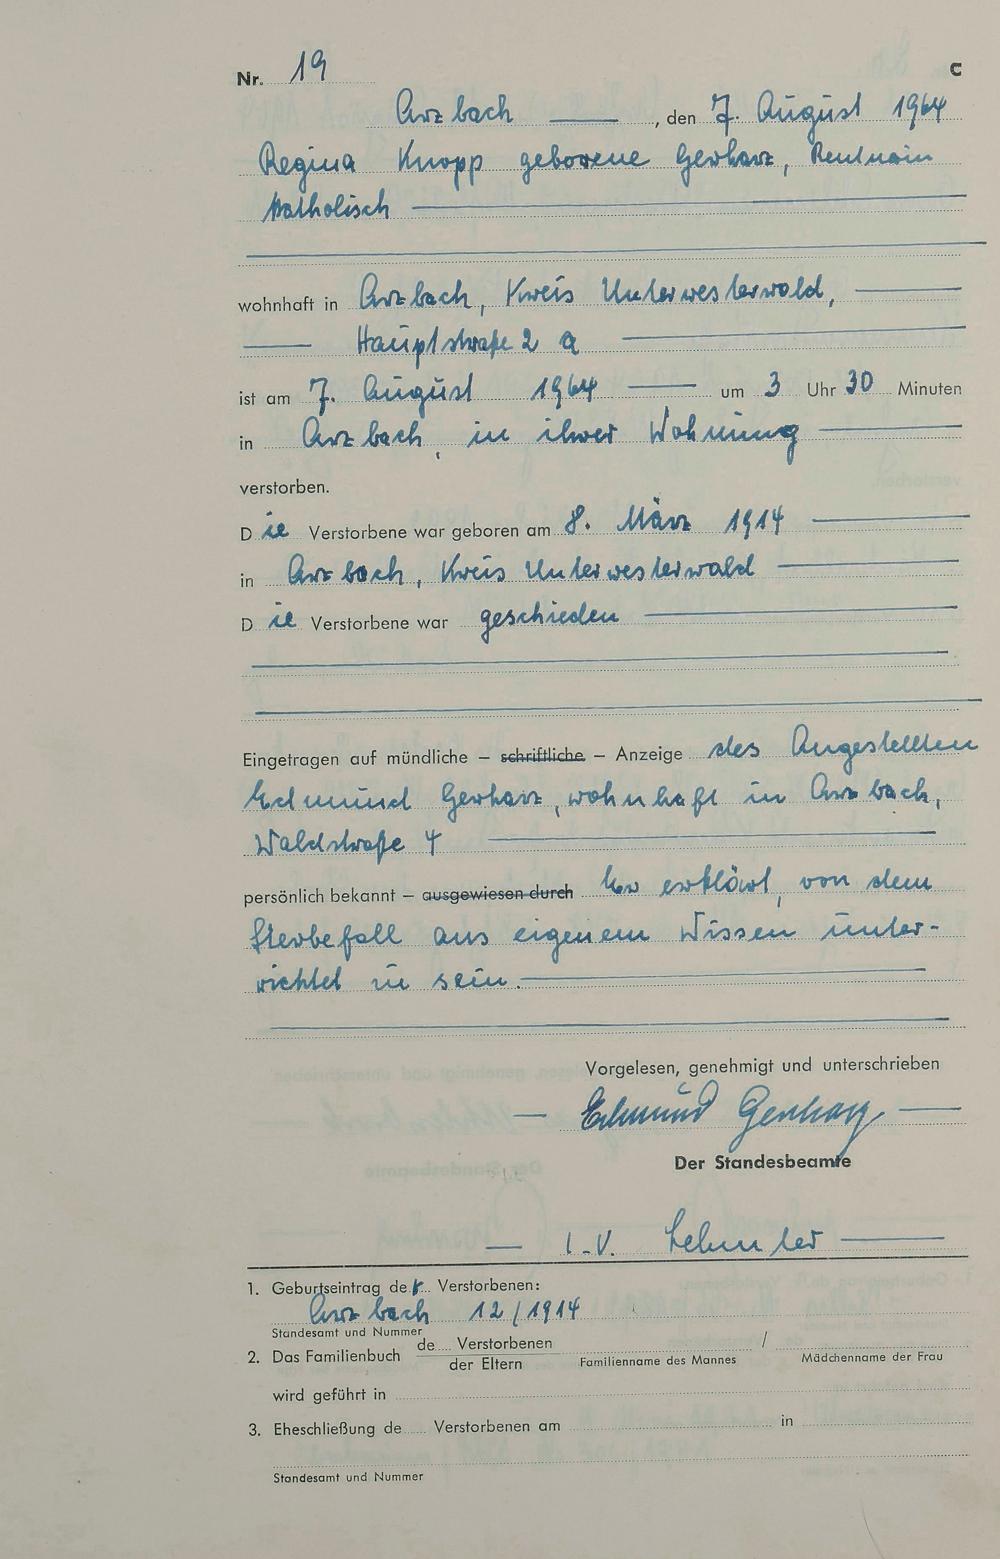 Nr. 19 C
Arzbach, den 7. August 1964
Regina Knopp geborene Gerharz, Rentnerin
katholisch
wohnhaft in Arzbach, Kreis Unterwesterwald,
Hauptstraße 2 a
ist am 7. August 1964 um 3 Uhr 30 Minuten
in Arzbach, in ihrer Wohnung
verstorben.
Die Verstorbene war geboren am 8. März 1914
in Arzbach, Kreis Unterwesterwald
Die Verstorbene war geschieden
Eingetragen auf mündliche – schriftliche – Anzeige des Angestellten
Edmund Gerharz, wohnhaft in Arzbach,
Waldstraße 4
persönlich bekannt – ausgewiesen durch Er erklärt, von dem
Sterbefall aus eigenem Wissen unter-
richtet zu sein.
Vorgelesen, genehmigt und unterschrieben
Edmund Gerharz
Der Standesbeamte
I.V.
1. Geburtseintrag der Verstorbenen:
Arzbach 12/1914
Standesamt und Nummer
2. Das Familienbuch de Verstorbenen /
der Eltern Familienname des Mannes Mädchenname der Frau
wird geführt in
3. Eheschließung de Verstorbenen am in
Standesamt und Nummer